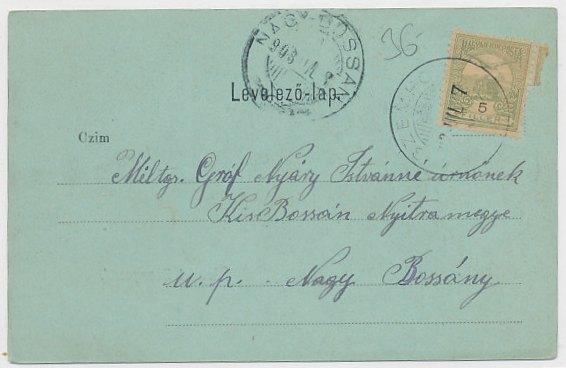 NAGY-BOSSÁNY
903
36
MAGYAR KIR. POSTA
5
FILLÉR
Levelező-lap.
Czim
Méltgs. Gróf Nyáry Istvánné úrnőnek
Kis Bossán Nyitra megye
u. p. Nagy Bossány